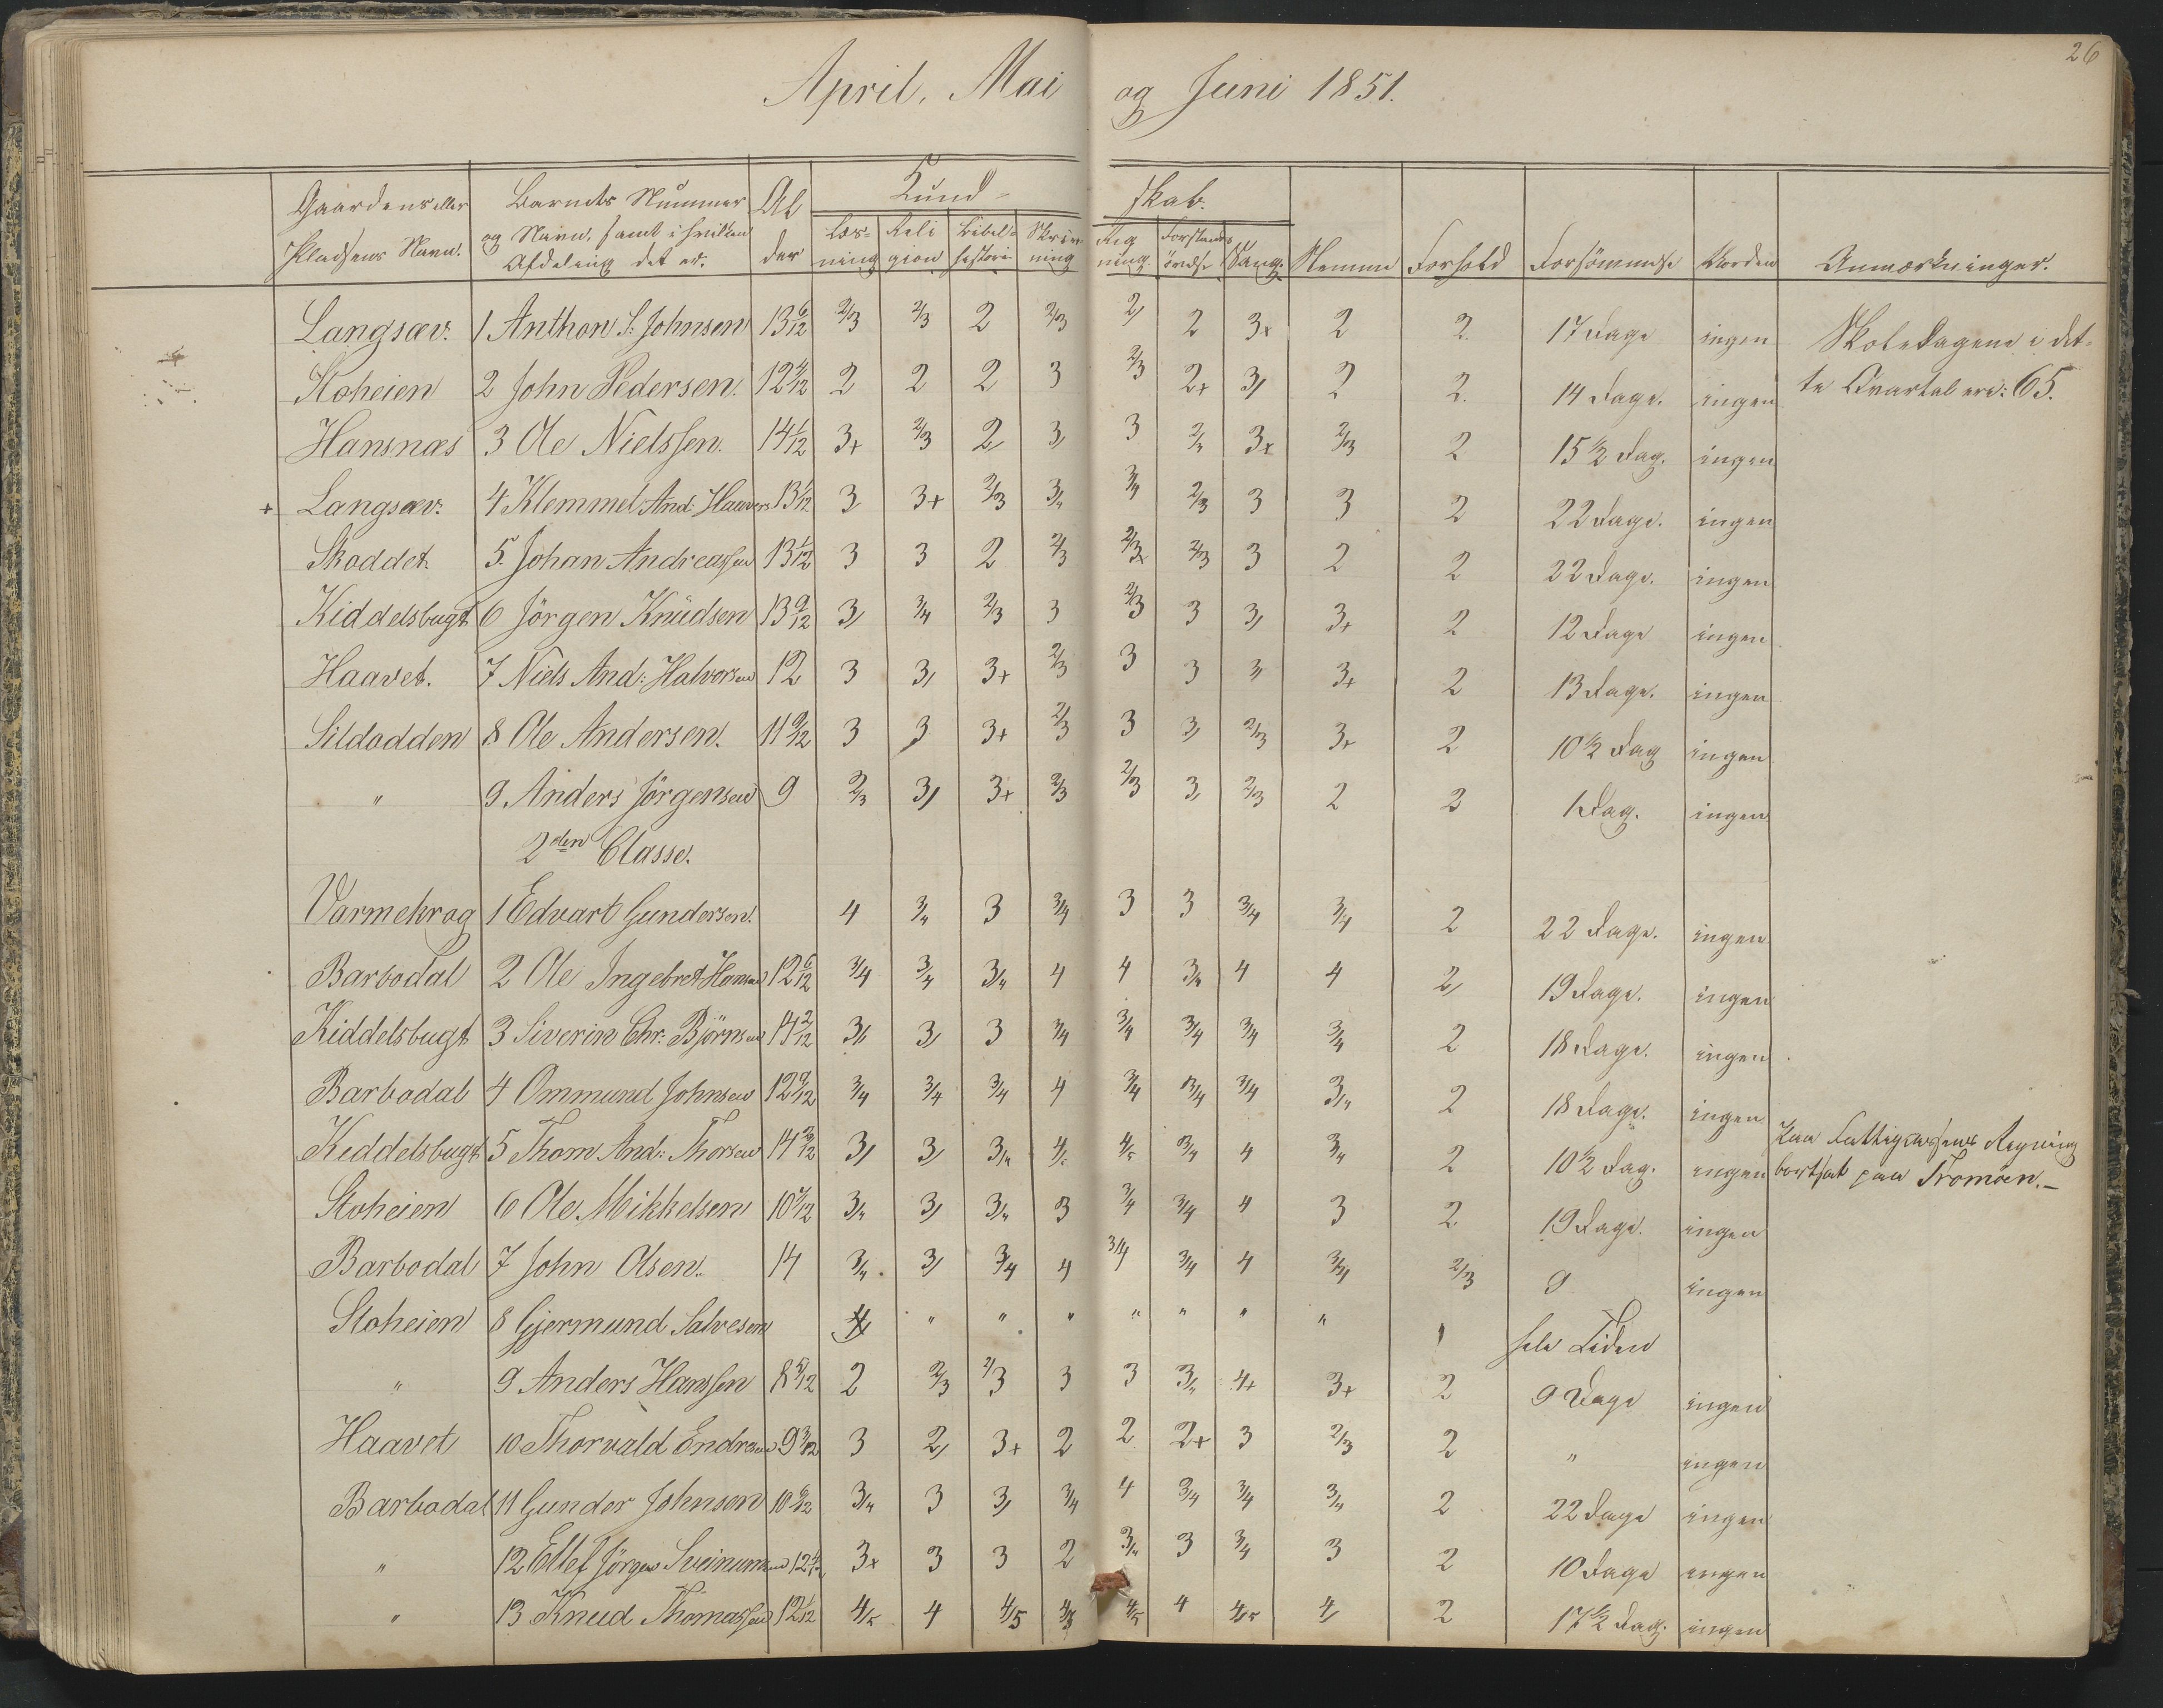 26
April, Mai og Juni 1851.
Gaardens eller Pladsens Navn. | Barnets Nummer og Navn, samt i hvilken Afdeling det er. | Alder | Kundskab: Læsning | Religion | Bibelhistorie | Skrivning | Regning | Forstandsövelse | Sang. | Nemme | Forhold | Forsömmelse | Varden | Anmærkninger.
Langsæv. 1 Anthon S. Johnsen 13 6/12 2/3 2/3 2 2/3 2/ 2 3+ 2 2. 17 Dage ingen Skoledagene i det-
Stoheien 2 John Pedersen. 12 4/12 2 2 2 3 2/3 2+ 3/ 2 2. 14 Dage. ingen te Qvartal ere: 65.
Hansnæs 3 Ole Nielssen. 14 1/12 3+ 2/3 2/ 3/ 3 2/3 3+ 2/3 2 15 1/2 Dag. ingen
+ Langsæv. 4. Klemmet And: Haavors 13 1/12 3 3+ 2/3 3/4 3/4 2/3 3 3 2 22 Dage. ingen
Skoddet. 5. Johan Andreassen 13 1/12 3 3 2 2/3 2/3+ 2/3 3 2 2 22 Dage. ingen
Kiddelsbugt 6 Jörgen Knudsen 13 9/12 3/ 3/4 2/3 3 2/3 3 3/ 3+ 2 12 Dage ingen
Haavet. 7 Niels And: Halvorsen 12 3 3/ 3+ 2/3 3 3 3/ 3+ 2 13 Dage. ingen
Sildodden 8 Ole Andersen. 11 9/12 3 3 3+ 2/3 3 3/ 2/3 3+ 2 10 1/2 Dag ingen
" 9 Anders Jörgensen 9 2/3 3/ 3+ 2/3 2/3 3/ 2/3 2 2 1 Dag. ingen
2den Classe.
Varmekrog 1 Edvart Gundersen. 4 3/4 3 3/4 3 3 3/4 3/4 2 22 Dage. ingen
Barbodal 2 Ole Ingebret Hansen 12 6/12 3/4 3/4 3/4 4 4 3/4 4 4 2/ 19 Dage. ingen
Kiddelsbugt 3 Siverin Chr: Björnsen 14 2/12 3/ 3/ 3 3/4 3/4 3/4 3/4 3/4 2 18 Dage. ingen
Barbodal 4 Ommund Johnsen 12 9/12 3/4 3/4 3/4 4 3/4 3/4 3/4 3/4 2 18 Dage. ingen
Kiddelsbugt 5 Thom And: Thorsen 14 3/ 3/ 3/4 4/5 4/5 3/4 4 3/4 2 10 1/2 Dag. ingen Paa Fattigcassens Regning
bortsat paa Tromöen.-
Stoheien 6 Ole Mikkelsen 10 7/12 3/4 3/ 3/4 3 3/4 3/4 4 3 2 19 Dage. ingen
Barbodal 7 John Olsen. 14 3/4 3/ 3/4 4 3/4 3/4 4 3/4 2/3 9 ingen
Stoheien 8 Gjermund Salvesen " " " " " " " hele Tiden
" 9 Anders Hanssen 8 5/12 2 2/3 2/3 3 3 3/4 4+ 3+ 2 9 Dage ingen
Haavet 10 Thorvald Endresen 9 3/12 3 2/ 3+ 2 2 2+ 3 2/3 2 " ingen
Barbodal 11 Gunder Johnsen 10 3/4 3 3/ 3/4 4 3/4 3/4 3/4 2 22 Dage ingen
" 12 Ellef Jörgen Sveinunsen 12 3+ 3 3 2 3/4 3 3/4 3 2 10 Dage ingen
" 13 Knud Thomassen 12 1/12 4/5 4 4/5 4/5 4 4/5 4/ 2 17 1/2 Dag. ingen